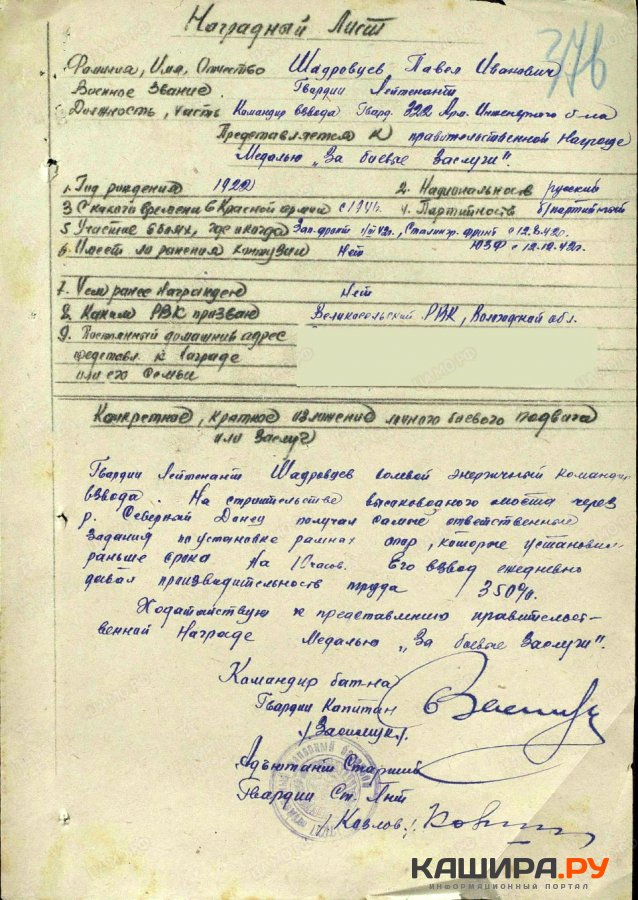 Наградный Лист
376
Фамилия, Имя, Отчество Шадровцев Павел Иванович
Военное Звание. Гвардии Лейтенант
Должность, часть Командир взвода Гвард. 322 Арм. Инженерного б-на
Представляется к правительственной Награде
Медалью „За боевые Заслуги".
1. Год рождения 1922 2. Национальность русский
3 С какого времени в Красной армии с 1941г. 4. Партийность б/партийный
5. Участие в боях, где и когда Зап. фронт 42г., Сталингр. фронт с 12.8.42г.
ЮЗФ с 12.12.42г.
6. Имеет ли ранения контузии Нет
7. Чем ранее Награжден Нет
8. Каким РВК призван Великосельский РВК, Вологодской обл.
9. Постоянный домашний адрес
представл. к Награде
или его Семьи
Конкретное, краткое изложение личного боевого подвига
или Заслуг
Гвардии Лейтенант Шадровцев волевой энергичный командир
взвода. На строительстве высоководного моста через
р. Северный Донец получал самые ответственные
задания по установке рамных опор, которые установил
раньше срока На 10 часов. Его взвод ежедневно
давал производительность труда 350%.
Ходатайствую к представлению правительст-
венной Награде Медалью „За боевые Заслуги".
Командир бат-на
Гвардии Капитан
Адъютант Старший
Гвардии Ст. Лнт
/Козлов/
КАШИРА.РУ
ИНФОРМАЦИОННЫЙ ПОРТАЛ